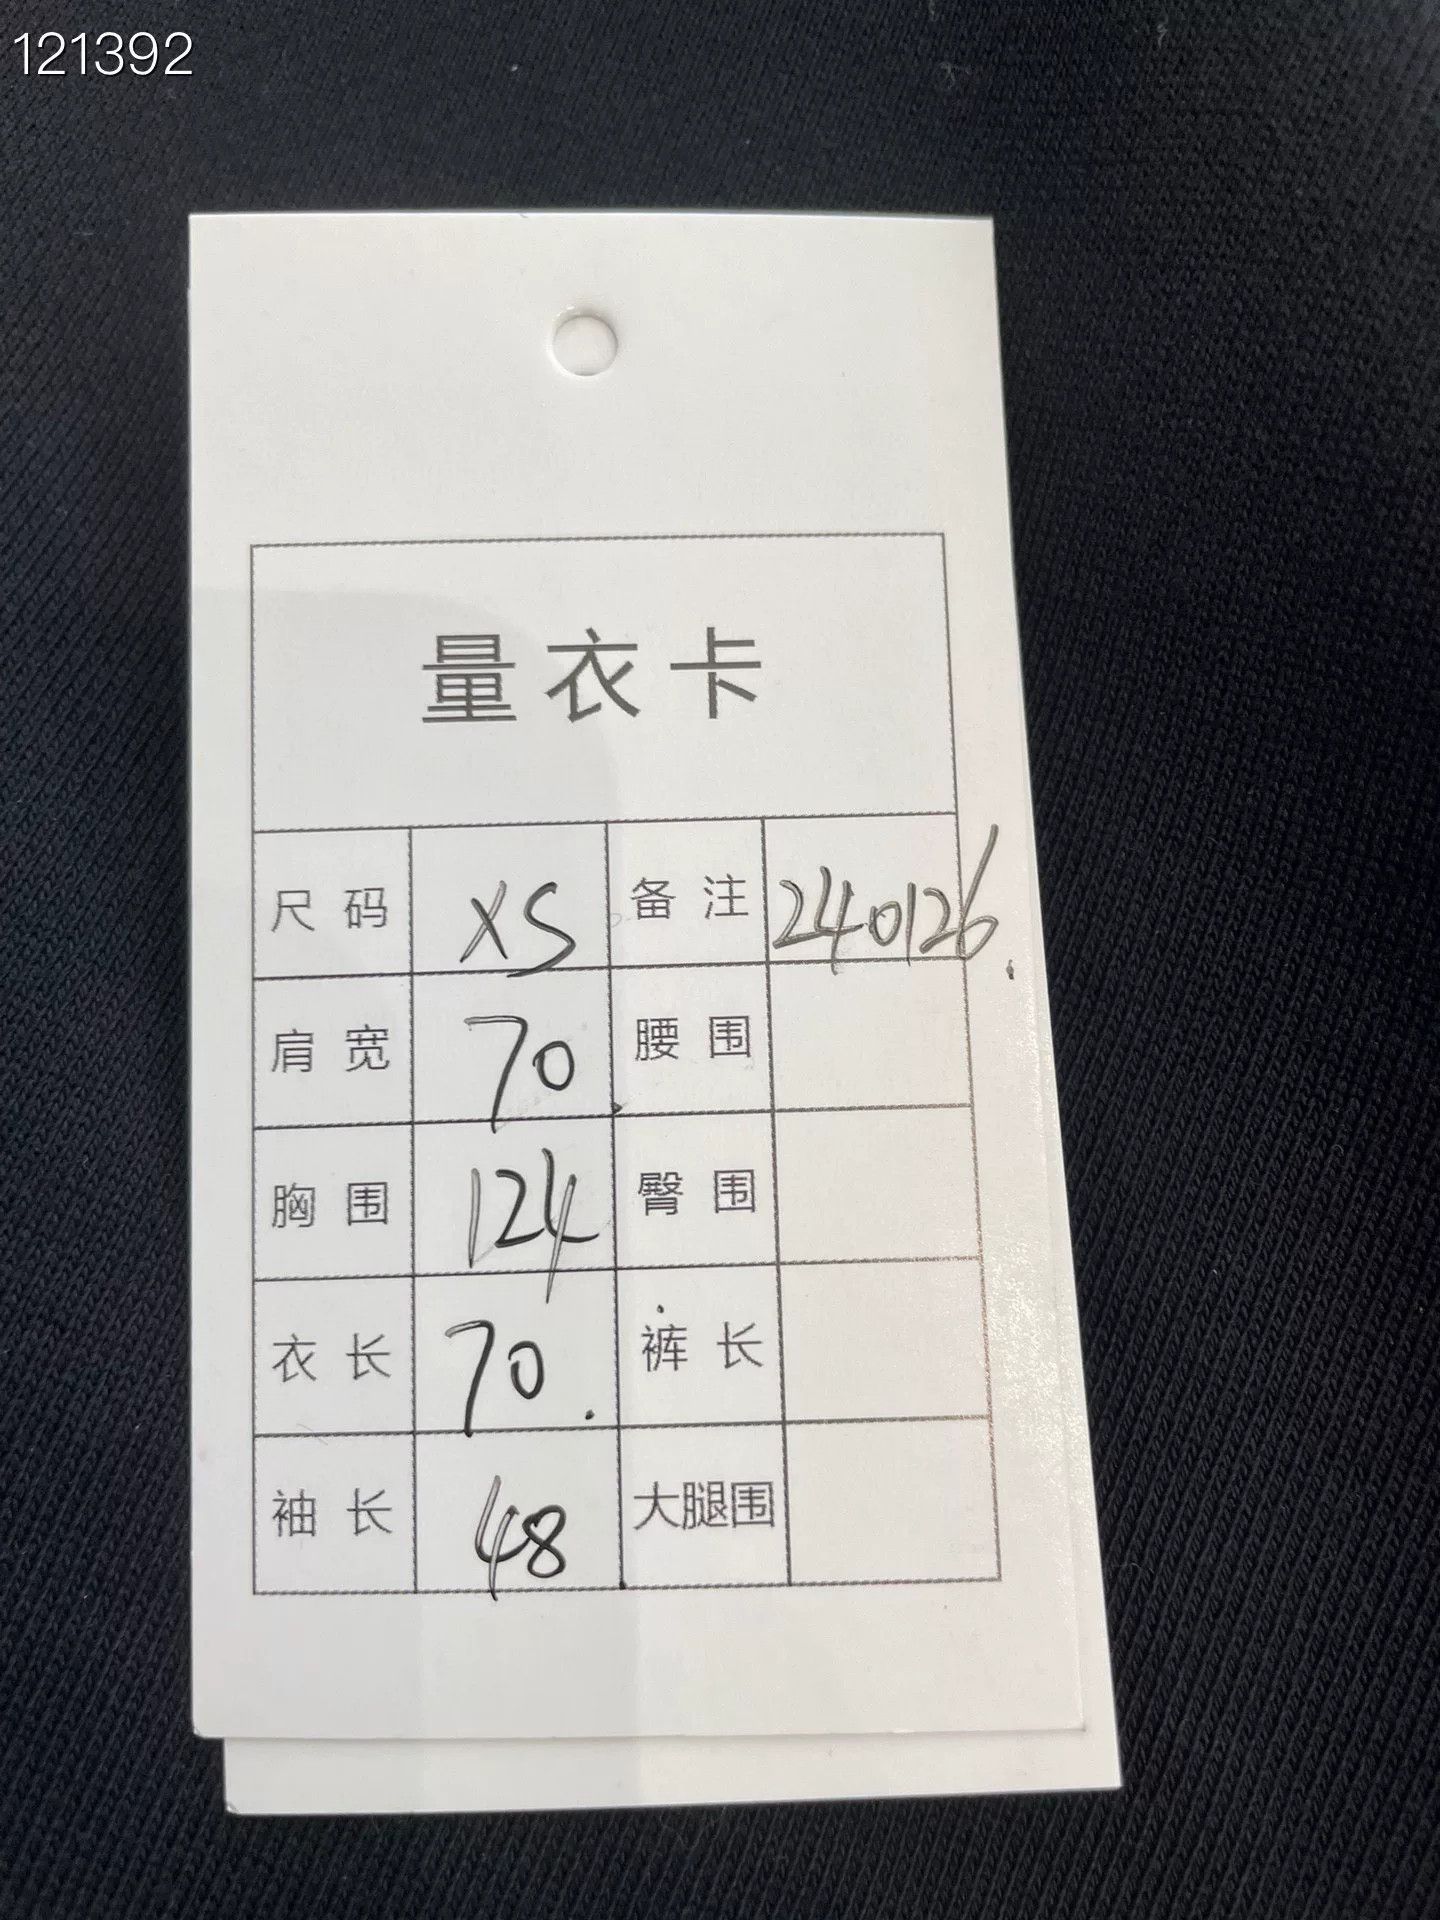 121392
量衣卡
尺码 XS 备注 240126.
肩宽 70 腰围
胸围 124 臀围
衣长 70. 裤长
袖长 48 大腿围